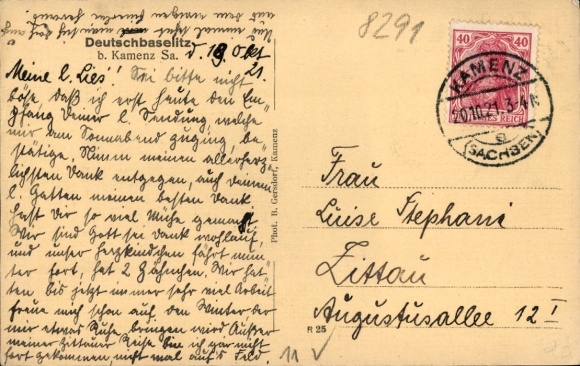 8291
Deutschbaselitz
b. Kamenz Sa.
d. 19. Okt
21.
Meine l. Lies! Sei bitte nicht
böse, daß ich erst heute den Em-
pfang Deiner l. Sendung, welche
mir am Sonnabend zuging, be-
stätige. Nimm meinen allerherz-
lichsten Dank entgegen, auch deinem
l. Gatten meinen besten Dank
hast Dir so viel Mühe gemacht.
Wir sind Gott sei Dank wohlauf,
und unser Herzkindchen fährt mun-
ter fort, hat 2 Zähnchen. Wir hat-
ten bis jetzt immer sehr viel Arbeit
freue mich schon auf den Winter der
mir etwas Ruhe bringen wird. Außer
meiner Zittauer Reise bin ich gar nicht
fort gekommen, nicht mal auf's Feld.
Phot. B. Gersdorf, Kamenz
40 40
DEUTSCHES REICH
KAMENZ
20.10.21. 3-4 N
a
(SACHSEN)
Frau
Luise Stephani
Zittau
Augustusallee 12 I
R 25
11